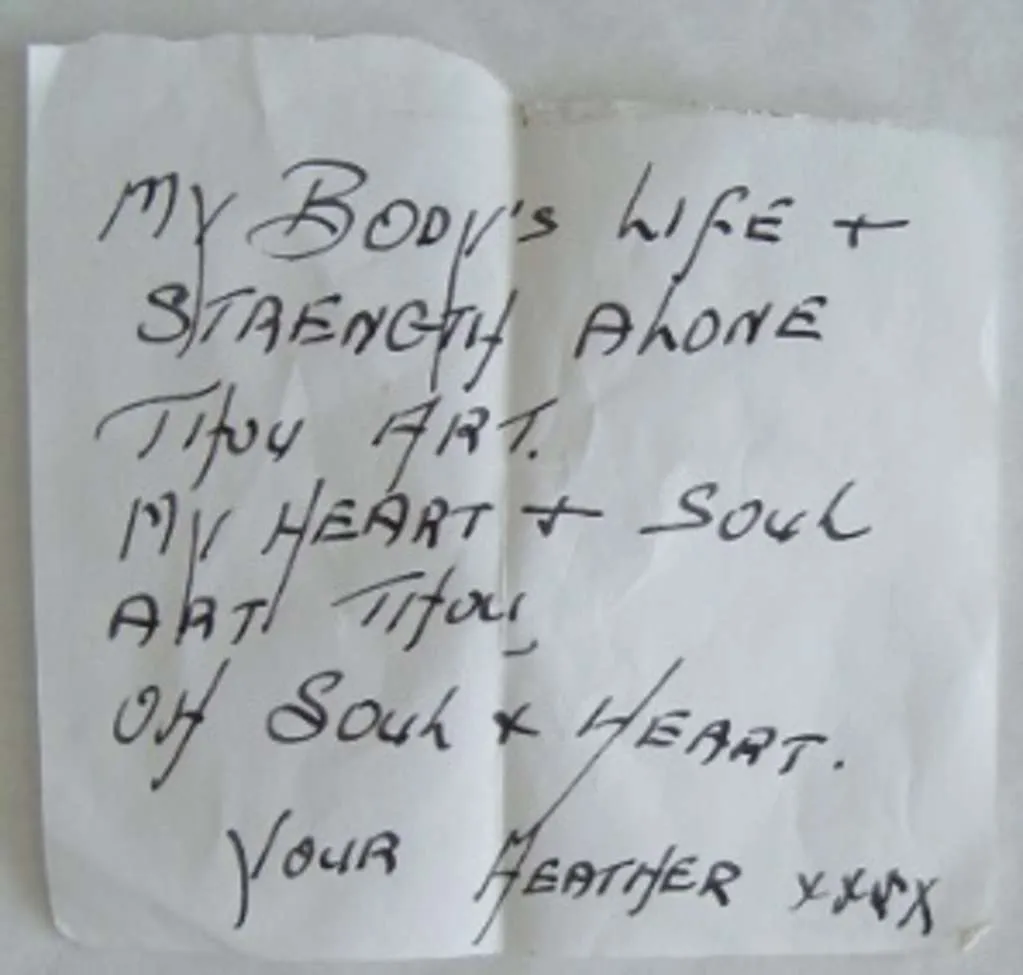 My BODy's LIFE +
STRENGTH ALONE
THOU ART.
My HEART + SOUL
ART THOU,
OH SOUL + HEART.
YOUR HEATHER xxxx